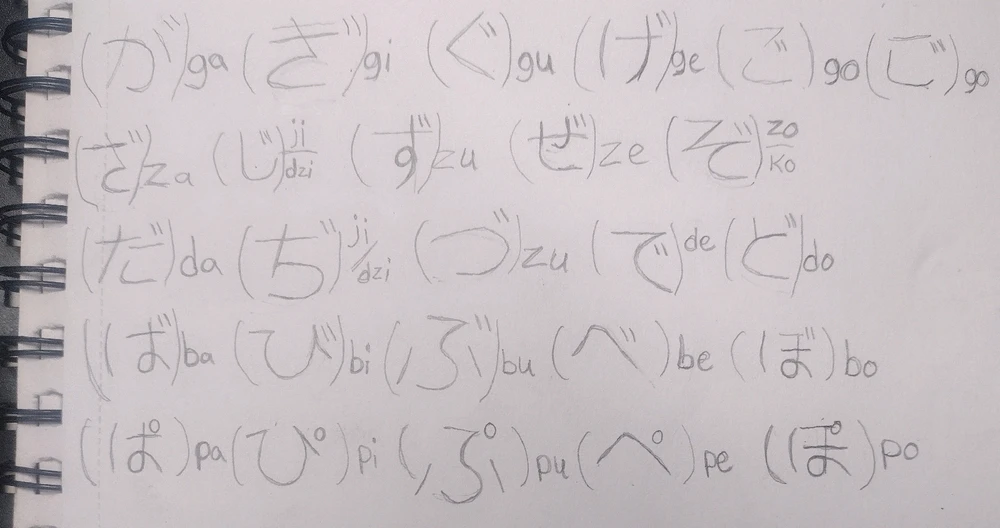 (が)ga (ぎ)gi (ぐ)gu (げ)ge (ご)go (ご)go
(ざ)za (じ)ji/dzi (ず)zu (ぜ)ze (ぞ)zo/ko
(だ)da (ぢ)ji/dzi (づ)zu (で)de (ど)do
(ば)ba (び)bi (ぶ)bu (べ)be (ぼ)bo
(ぱ)pa (ぴ)pi (ぷ)pu (ぺ)pe (ぽ)po